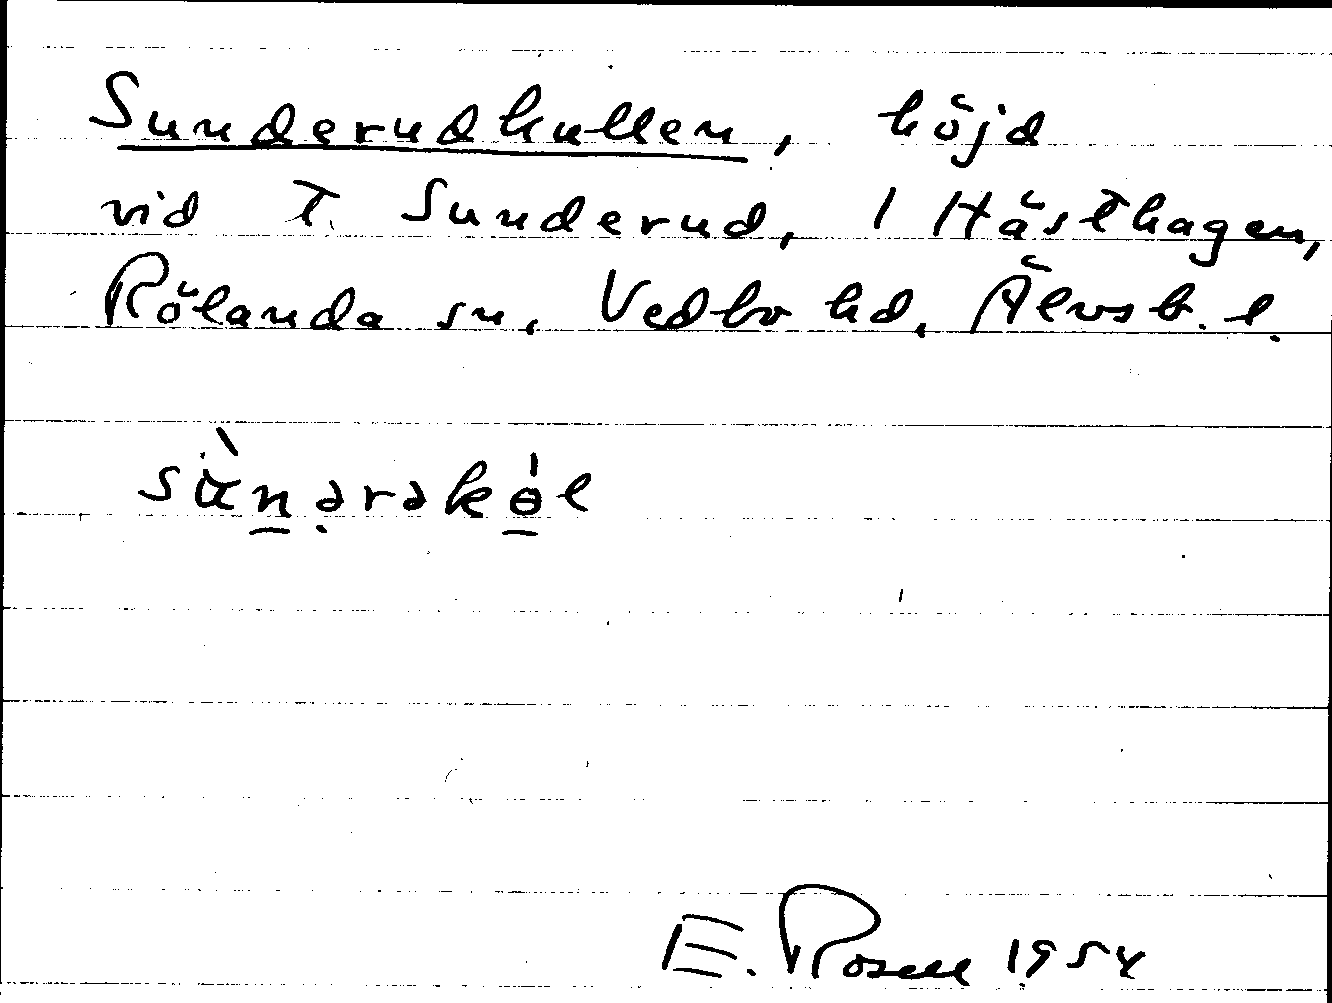 Sunderudkullen, höjd
vid T. Sunderud, 1 Hästhagen,
Rölanda sn, Vedbo hd, Älvsb. l.
sùn̠ə̣rəkɵ̠́l
E. Rosell 1954